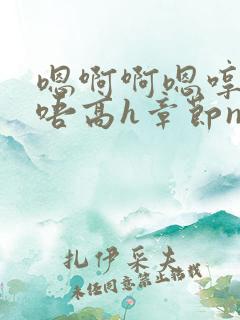 嗯啊啊嗯哼
唔高h章節n
扎伊采夫
未经同意禁止转载